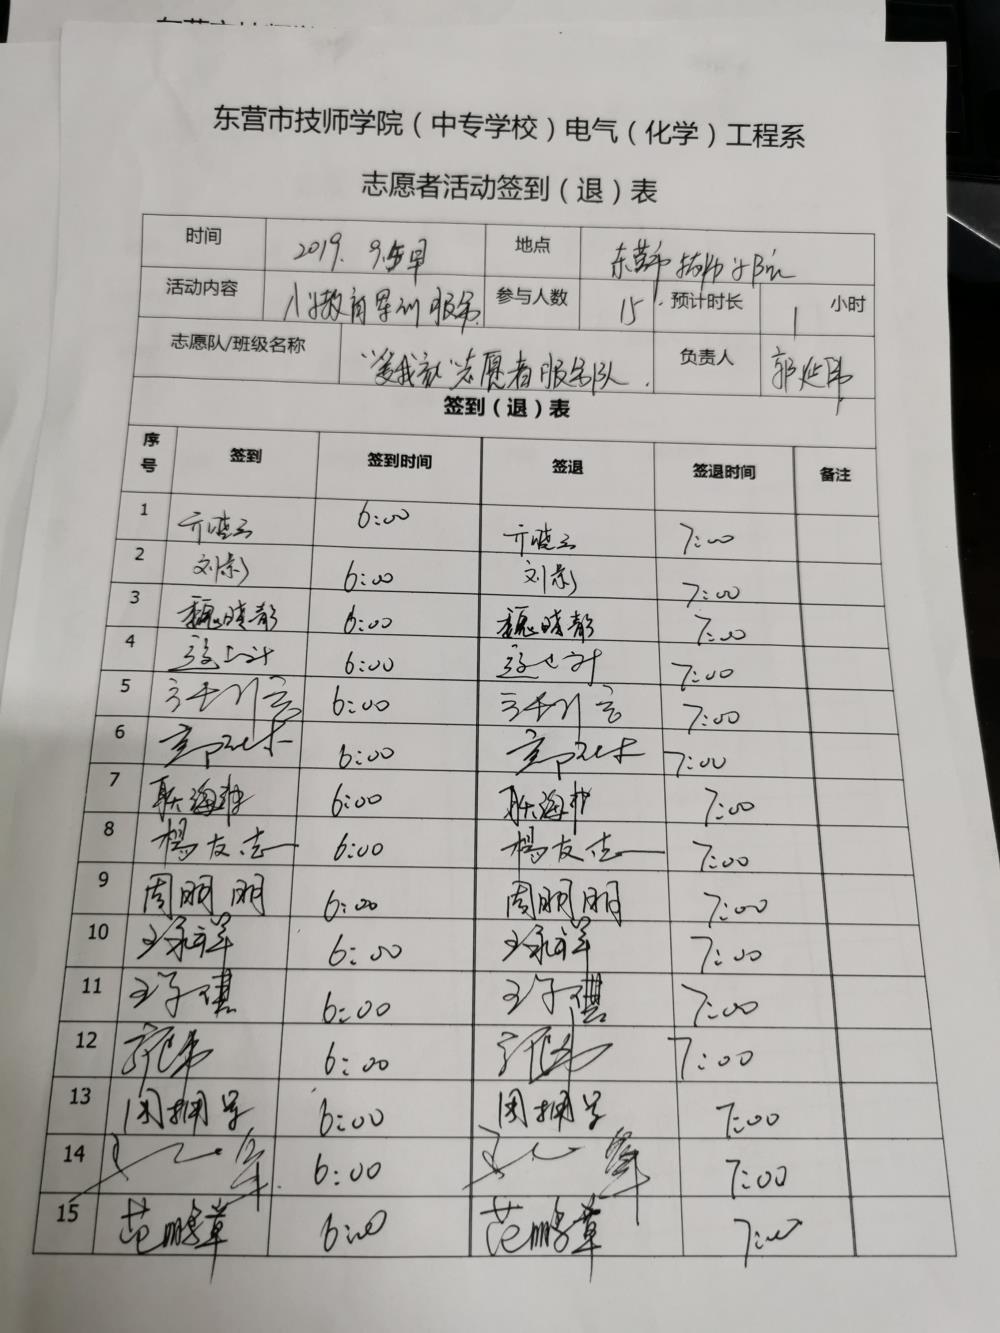 东营市技师学院（中专学校）电气（化学）工程系
志愿者活动签到（退）表
时间 2019. 9. 早 地点 东营市技师学院
活动内容 入学教育军训服务. 参与人数 15 预计时长 1 小时
志愿队/班级名称 志愿者服务队 负责人 郭延
签到（退）表
序号 签到 签到时间 签退 签退时间 备注
1 齐晓云 6:00 齐晓云 7:00
2 刘彩 6:00 刘彩 7:00
3 魏晓彭 6:00 魏晓彭 7:00
4 6:00 7:00
5 6:00 7:00
6 6:00 7:00
7 耿海 6:00 耿海 7:00
8 杨友志 6:00 杨友志 7:00
9 周明明 6:00 周明明 7:00
10 王永祥 6:00 王永祥 7:00
11 王子琪 6:00 王子琪 7:00
12 6:00 7:00
13 6:00 7:00
14 6:00 7:00
15 范鹏章 6:00 范鹏章 7:00